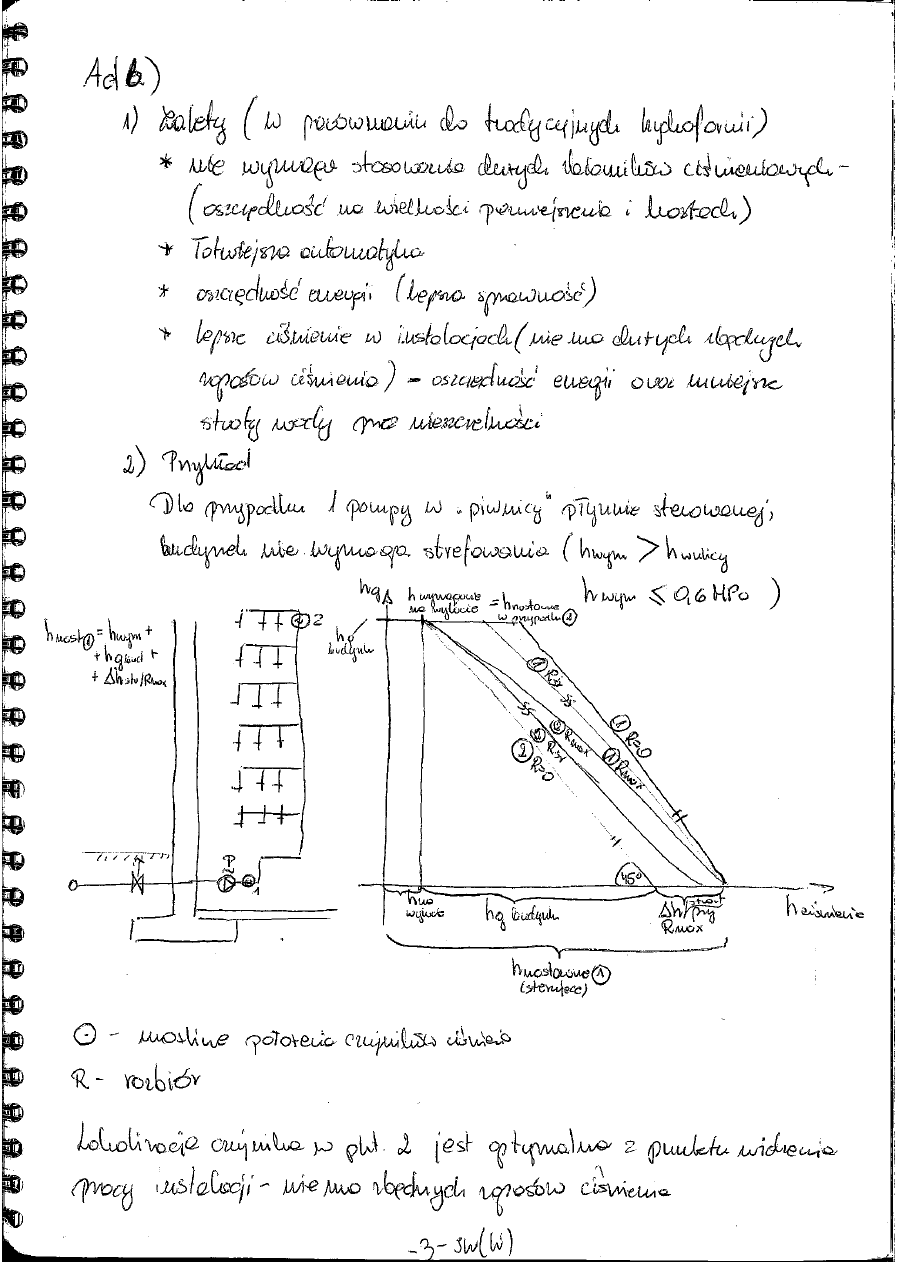 Ad b)
1) Zalety (w porównaniu do tradycyjnych hydroforni)
* nie wymaga stosowania dużych zbiorników ciśnieniowych -
(oszczędność na wielkości pomieszczenia i kosztach)
* Łatwiejsza automatyka
* oszczędność energii (lepsza sprawność)
* lepsze ciśnienie w instalacjach (nie ma dużych zbędnych
zapasów ciśnienia) - oszczędność energii oraz mniejsze
straty wody przez nieszczelności
2) Przykład
Dla przypadku 1 pompy w „piwnicy" płynnie sterowanej,
budynek nie wymaga strefowania (hwym > hwulicy
hwym ≤ 0,6 MPa)
hnast① = hwym +
+ hg bud +
+ Δhstr/Rmax
2
P
1
hg
h wymagane na wylocie = hnastawne w przypadku ②
hg budynku
① Rśr
① R=0
① Rmax
② Rmax
② Rśr
② R=0
45°
hna wylocie
hg budynku
Δhstrat przy Rmax
h ciśnienie
hnastawne ①
(sterujące)
⊙ - możliwe położenia czujników ciśnienia
R - rozbiór
Lokalizacja czujnika w pkt. 2 jest optymalna z punktu widzenia
pracy instalacji - nie ma zbędnych zapasów ciśnienia
-3- SW(W)